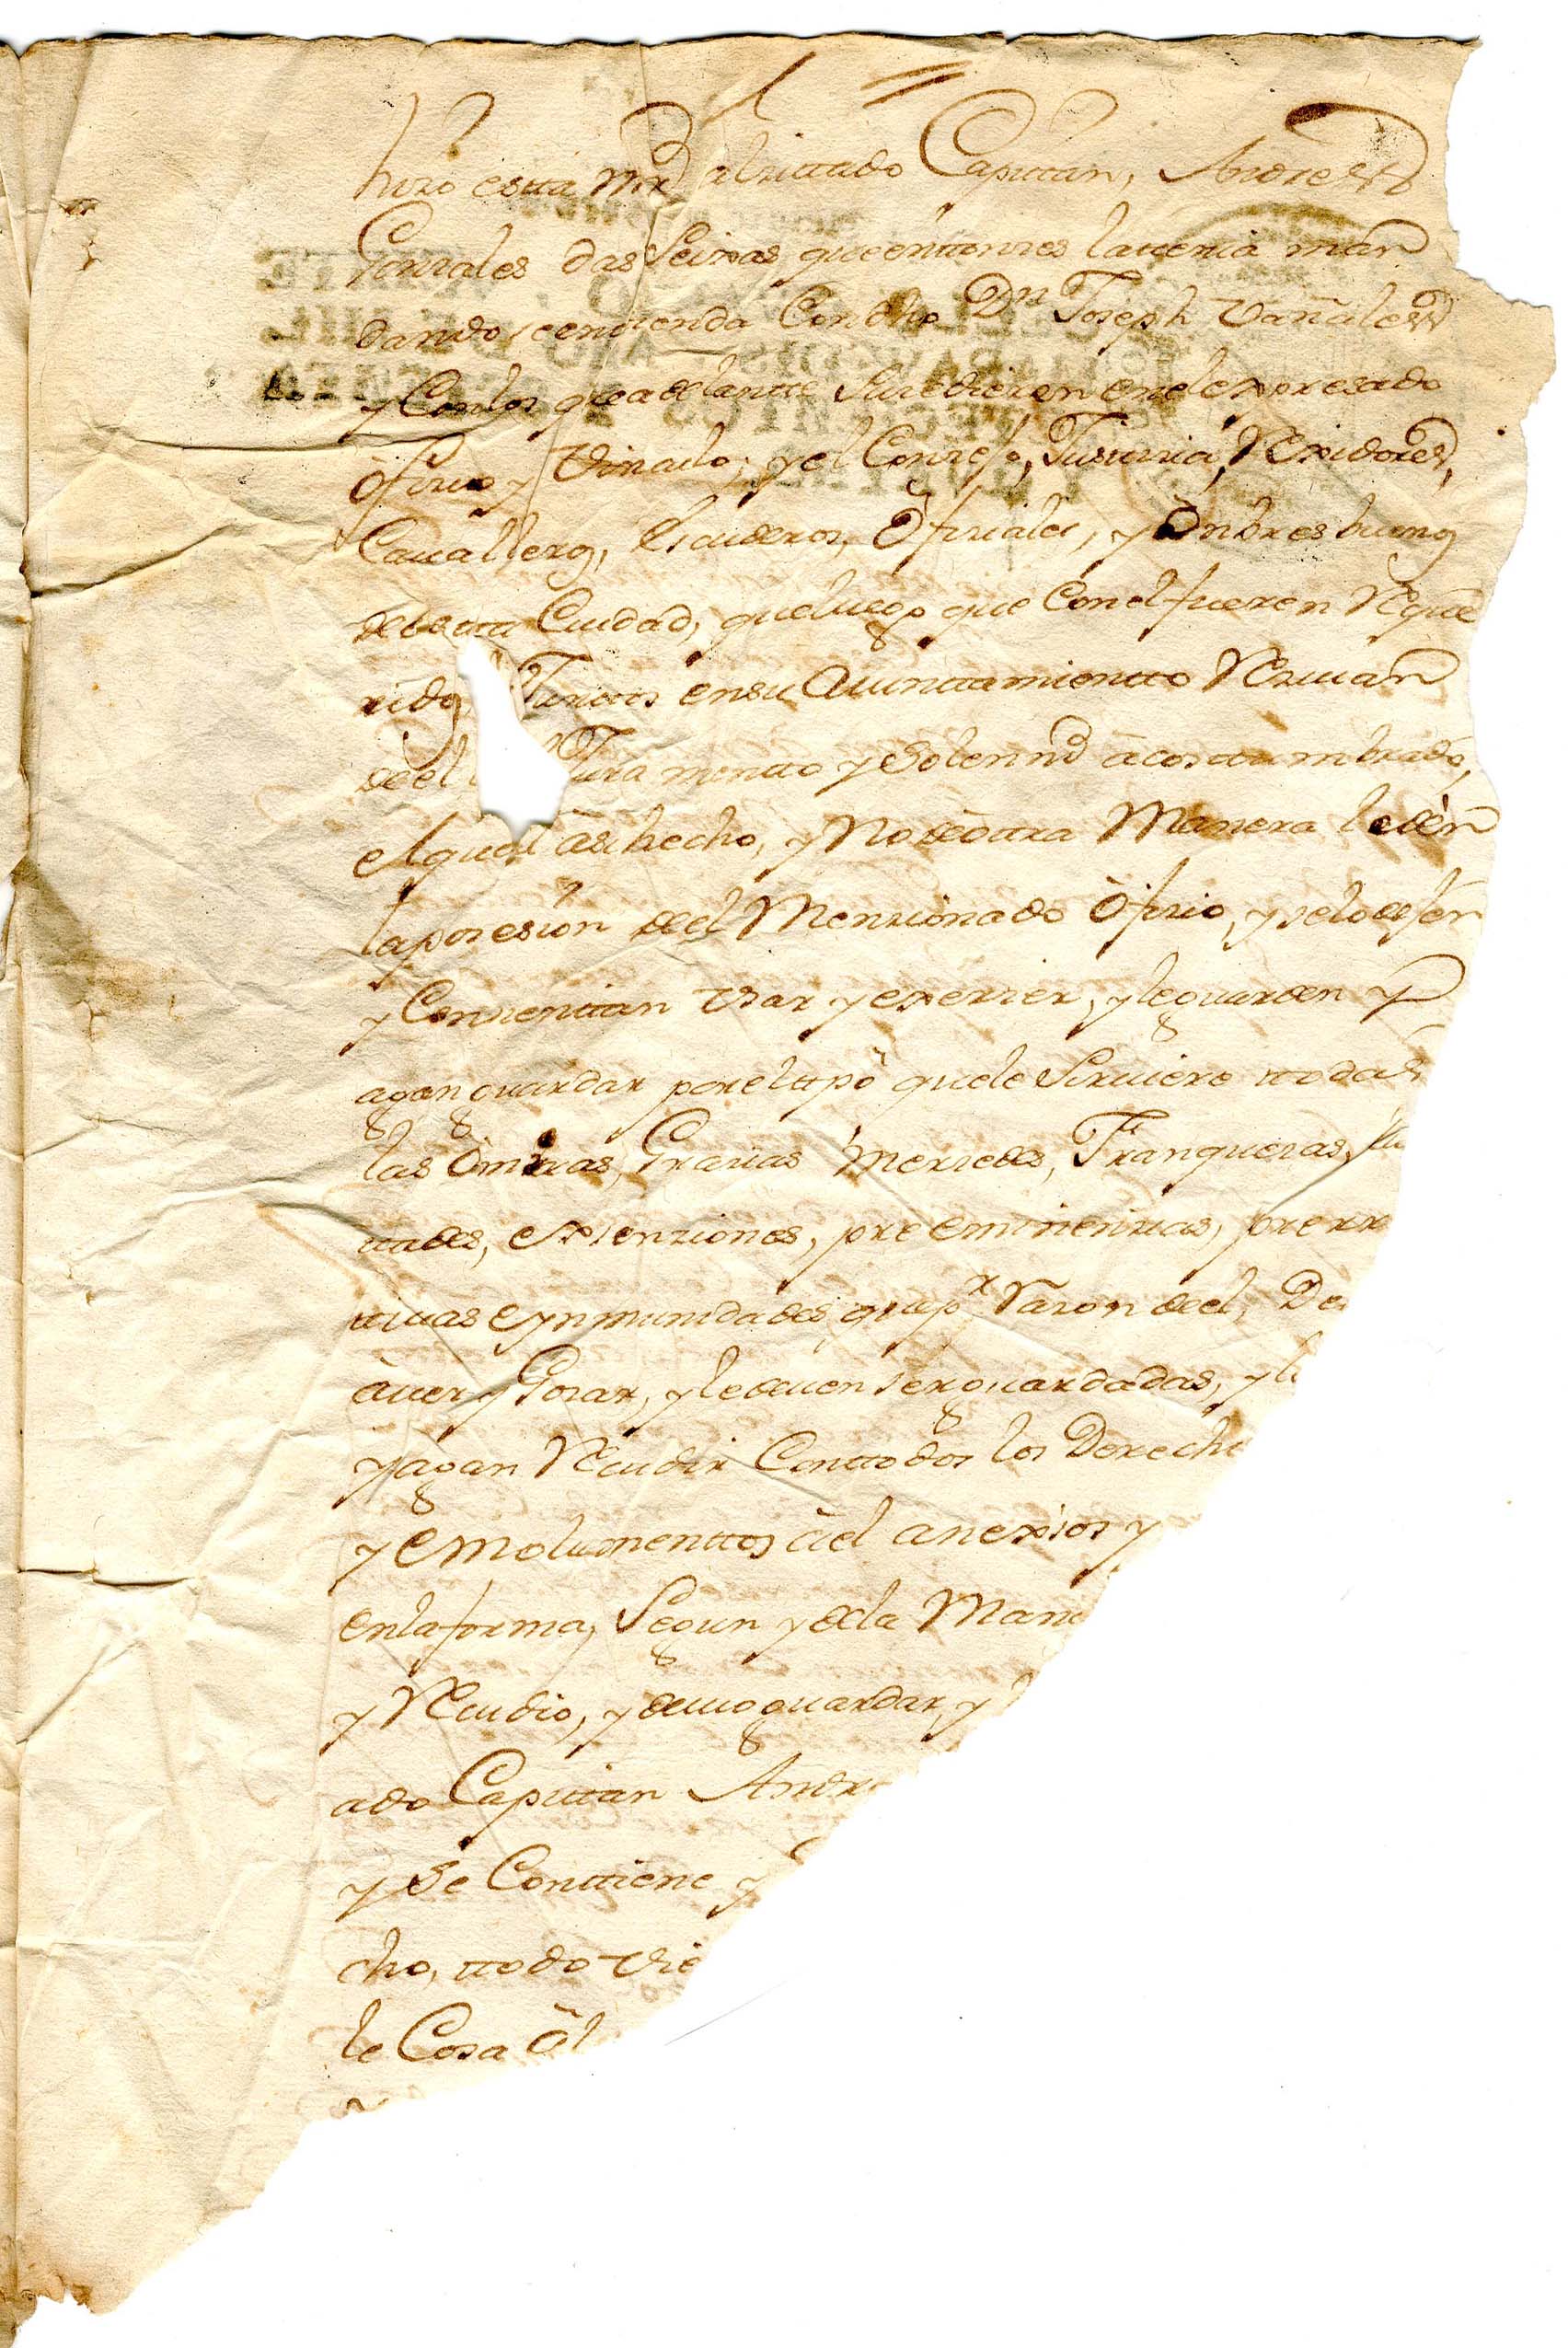 hizo esta Mrd al zittado Capitan, Andres
Gonzales das Seixas que enttonzes la ttenia man
dando se enttienda Con dho Dn Joseph Vañales
y Con los que adelantte Suzedieren en el expresado
ôfizio y Vinculo; y el Conzejo, Justizia, Rexidores,
Caualleros, Escuderos, Ôfiziales, y Ônbres buenos
de estta Ciudad, que luego que Con el fueren Reque
ridos, Junttos en su Aiunttamientto Reziuan
de el Juramentto y Solennd acosttumbrado,
el qual asi hecho, y No de ôtra Manera le den
la posesion de el Menzionado ôfizio, y se lo dejen
y Consienttan Vsar y exerzer, y le guarden y
agan guardar por el tpô que le Siruiere ttodas
las Ônrras, Grazias Merzedes, Franquezas,
ttades, exsenziones, preeminenzias, prerr
ttiuas e ynmunidades, que pr Razon de el, De
âuer y Gozar, y le deuen ser guardadas, y
y agan Recudir Con ttodos los Derech
y Emolumenttos âel anexsos y
en la forma, Segun y de la Man
y Recudio, y deuio guardar, y
ado Capittan Andr
y Se Conttiene y
cho, ttodo Vie
le Cosa âl